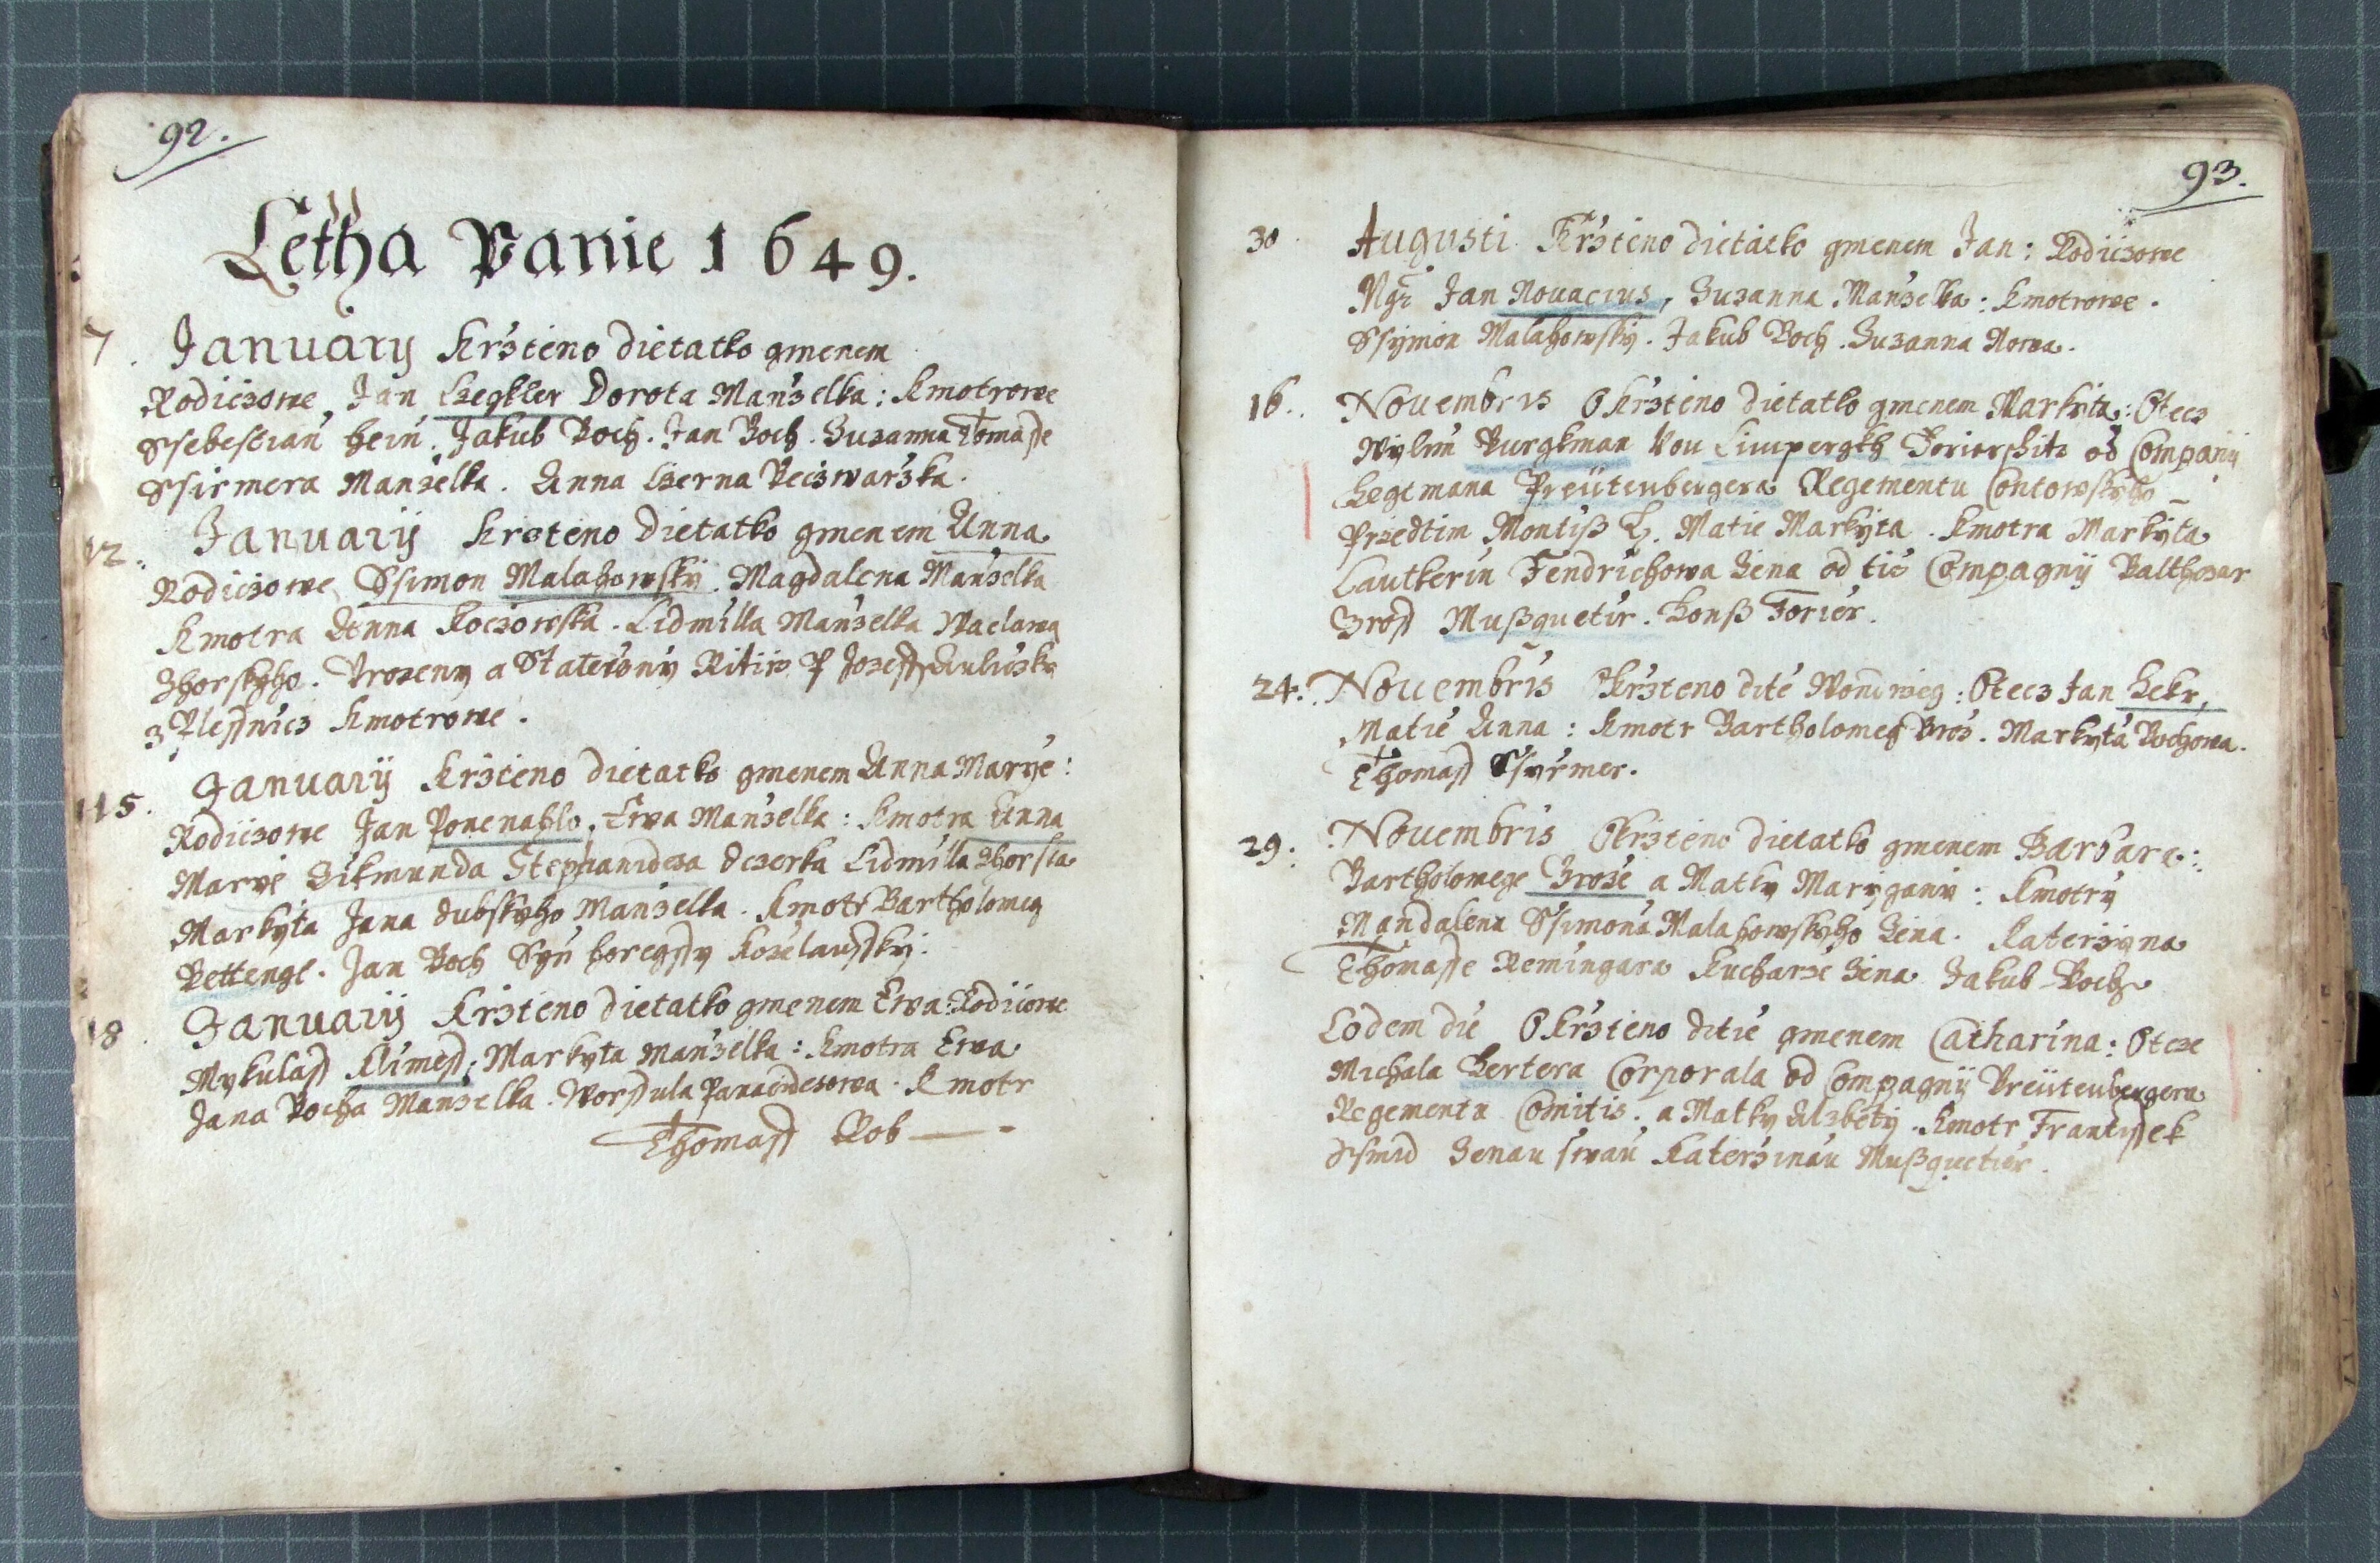 92.
Letha Panie 1649.
7. January Krzteno dietatko gmenem
Rodiczowe Jan Czegkler Dorota Manzelka: Kmotrowe
Ssebestian hein. Jakub Boch. Jan Boch. Suzanna Tomasse
Ssirmera Manzelka. Anna Czerna Beczwarzka.
12. Januarij Krzteno dietatko gmenem Anna
Rodiczowe Ssimon Malahowský. Magdalena Manzelka
Kmotra Anna Koczowska. Lidmilla Manzelka Waclawa
Zhorskyho. Vrozeny a Statečzny Ritirz P Jozeff
z Plessnicz Kmotrowe.
15. Januarij Krzteno dietatko gmenem Anna Marye:
Rodiczowe Jan Ponenahlo, Ewa Manzelka: Kmotra Anna
Marye Zikmunda Stephanidesa dczerka Lidmilla Zhorska
Markyta Jana dubskyho Manzelka. Kmotr Bartholomeg
Pettengl. Jan Boch Syn horegssy Kozelausskj:
18. Januarij Krzteno dietatko gmenem Ewa: Rodiczowe
Mykulass Klimess: Markyta Manzelka: Kmotra Ewa
Jana Bocha Manzelka. Worssula. Kmotr
Thomass Bob
93.
30. Augusti Krzteno dietatko gmenem Jan: Rodiczowe
Mgr Jan Nouacius, Suzanna Manzelka: Kmotrowe.
Ssymon Malahowský. Jakub Boch. Suzanna Nowa.
16. Nouembris Okrzteno dietatko gmenem Markyta: Otecz
Wylim Burgkman Von Limpergkh od Companij
Hegtmana Preütenbergera Regementu Contowskyho
Przedtim Matie Markyta. Kmotra Markyta
Lautkerin Fendrichowa Zena od tiež Compagnij Balthozar
Brož Mußquetir. Honß Forier.
24. Nouembris Okrzteno dite: Otecz Jan Hekr,
Matie Anna: Kmotr Bartholomeg Broz. Markyta Bochowa.
Thomass Ssyrmer.
29. Nouembris Okrzteno dietatko gmenem Barbara:
Bartholomege Broze a Matky Marygany: Kmotry
Mandalena Ssimona Malahowskyho Zena. Katerzyna
Thomasse Remingara Kucharze Zena Jakub Boch
Eodem die Okrzteno ditie gmenem Catharina: Otcze
Michala Hertera Corporala od Compagnij Preütenbergera
Regementu Comitis. a Matky Alzbéty. Kmotr Frantissek
Ssmid Zenau swau Katerzinau Mußquetier.